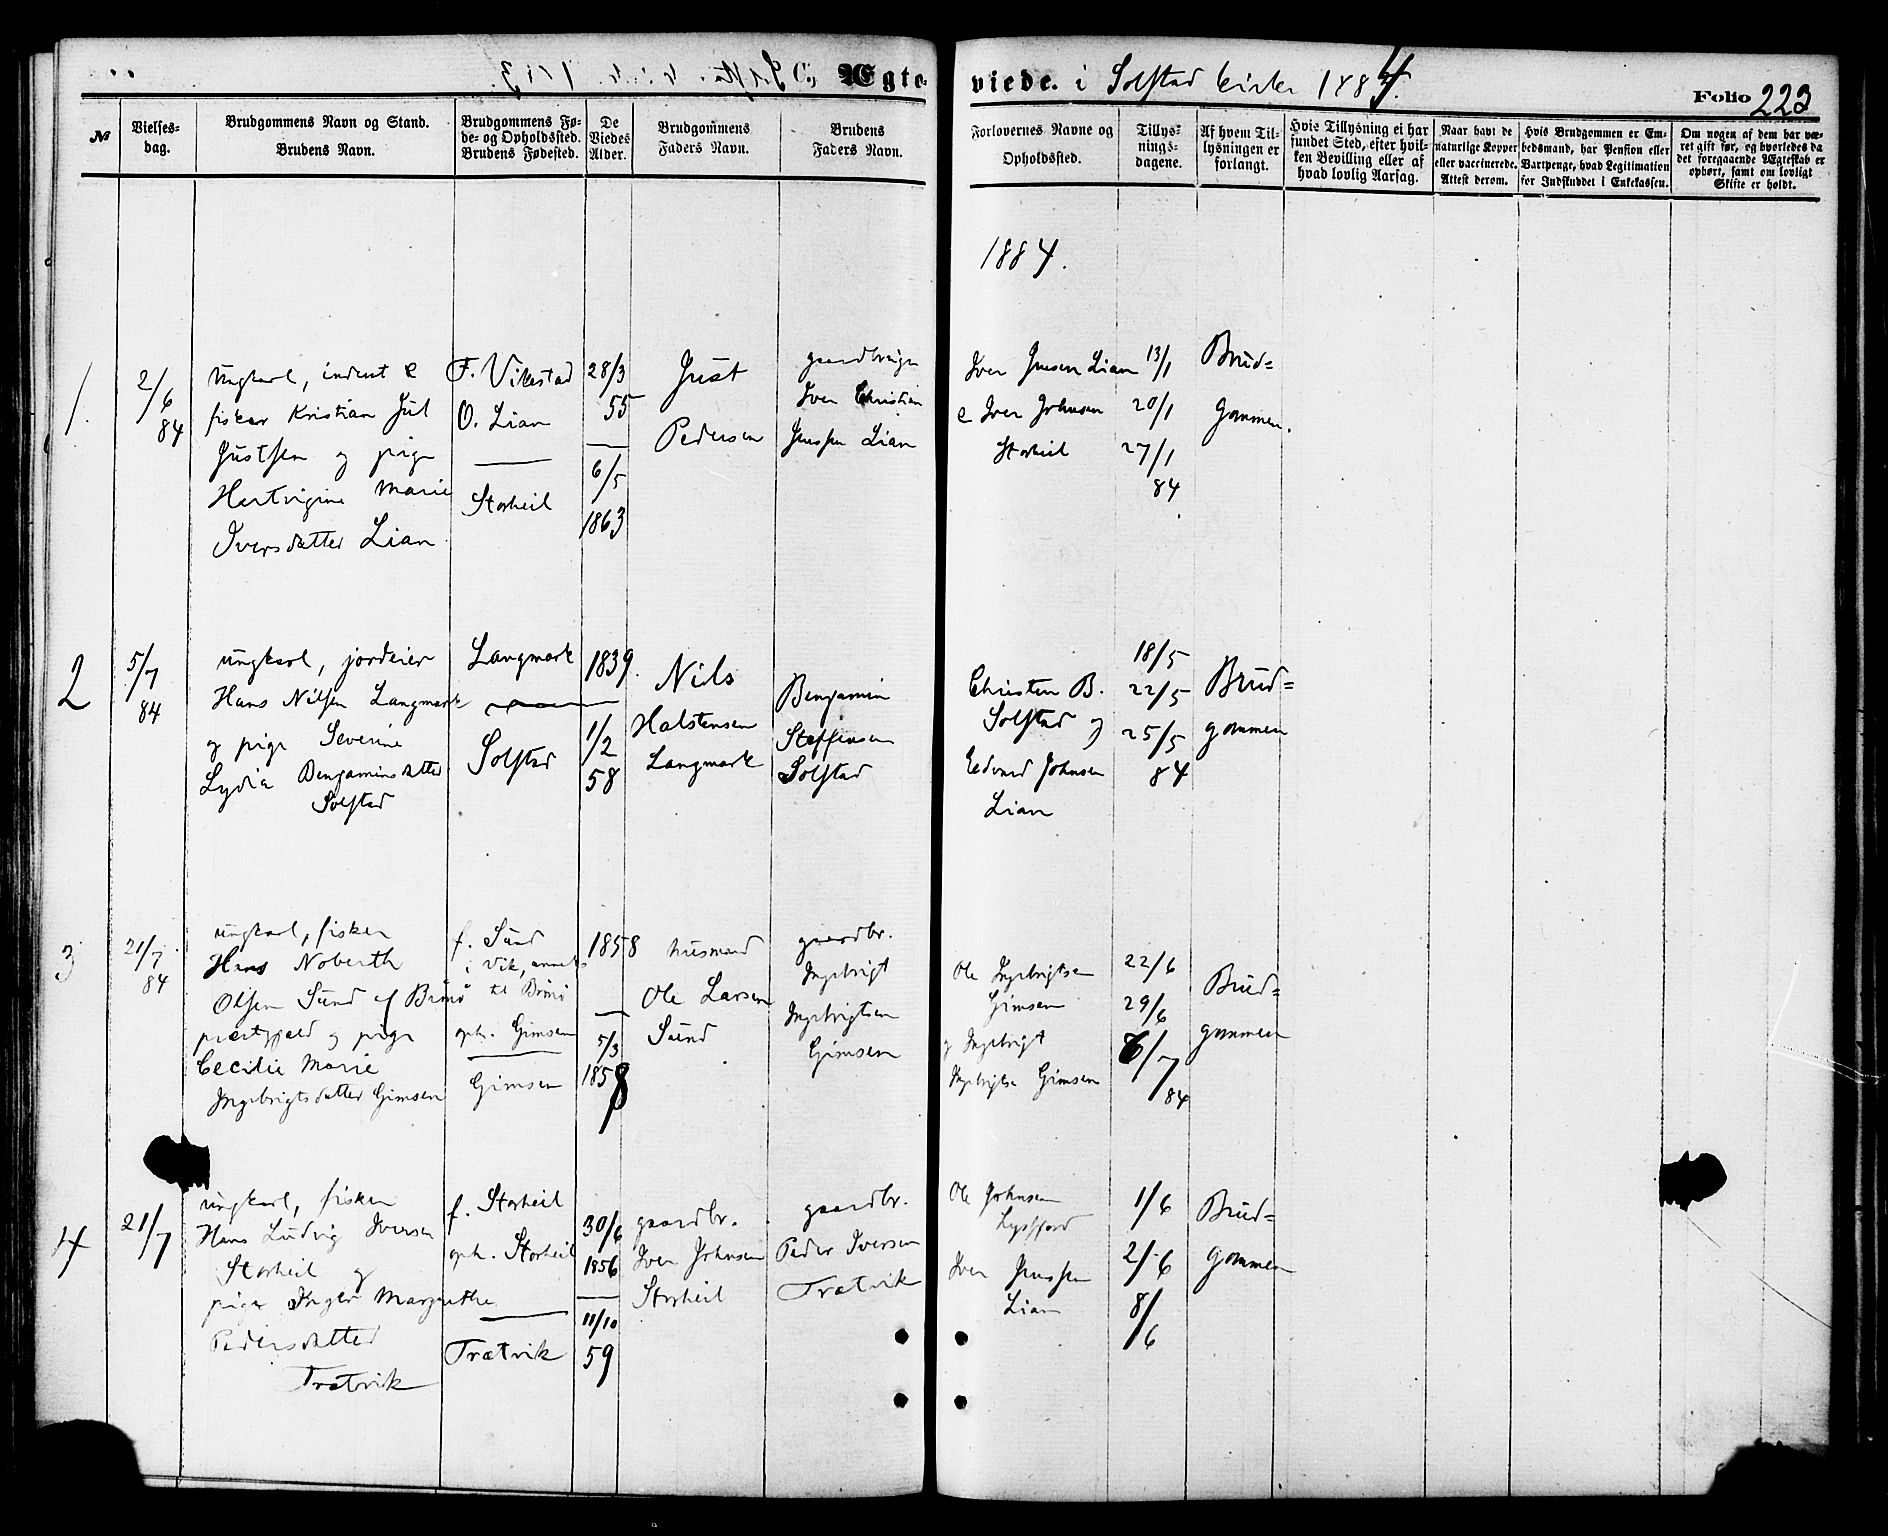 C, Ægte-
viede. i Solstad kirke 1884.
Folio 223
№
Vielses-
dag.
Brudgommens Navn og Stand.
Brudens Navn.
Brudgommens Fø-
de- og Opholdssted.
Brudens Fødested.
De
Viedes
Alder.
Brudgommens
Faders Navn.
Brudens
Faders Navn.
Forlovernes Navne og
Opholdssted.
Tillys-
nings-
dagene.
Af hvem Til-
lysningen er
forlangt.
Hvis Tillysning ei har
fundet Sted, efter hvil-
ken Bevilling eller af
hvad lovlig Aarsag.
Naar havt de
naturlige Kopper
eller vaccinerede.
Attest derom.
Hvis Brudgommen er Em-
bedsmand, har Pension eller
Vartpenge, hvad Legitimation
for Indskuddet i Enkekassen.
Om nogen af dem har væ-
ret gift før, og hvorledes da
det foregaaende Ægteskab er
ophørt, samt om lovligt
Skifte er holdt.
1884.
1.
2/6
84
Ungkarl, inderst &
fisker Kristian Jul
Justsen og pige
Hartvigine Marie
Iversdatter Lian
F. Vikestad
O. Lian
Storheil
28/3
55
6/5
1863
Just
Pedersen
gaardbruger
Iver Christian
Jenssen Lian
Iver Jensen Lian
& Iver Johnsen
Storheil
13/1
20/1
27/1
84
Brud=
gommen.
2
5/7
84
ungkarl, jordeier
Hans Nilsen Langmark
og pige Severine
Lydia Benjaminsdatter
Solstad
Langmark
Solstad
1839.
1/2
58
Nils
Halstensen
Langmark
Benjamin
Steffensen
Solstad
Christen B.
Solstad og
Edvard Johnsen
Lian
18/5
22/5
25/5
84
Brud=
gommen
3
21/7
84
ungkarl, fisker
Hans Noberth
Olsen Sund af Brønø
præstegjeld og pige
Cecilie Marie
Ingebrigtsdatter Gimsen
f. Sund
i Vik, anneks
til Brønø
oph. Gimsen
Gimsen
1858
5/3
1858
husmand
Ole Larsen
Sund
gaardbr.
Ingebrigt
Ingebrigtsen
Gimsen
Ole Ingebrigtsen
Gimsen
og Ingebrigt
Ingebrigtsen Gimsen
22/6
29/6
6/7
84
Brud=
gommen
4
21/7
ungkarl, fisker
Hans Ludvig Iversen
Storheil og
pige Inger Margrethe
Pedersdatter
Trætvik
f. Storheil
oph. Storheil
Trætvik
30/6
1856
11/10
59
gaardbr.
Iver Johnsen
Storheil
gaardbr.
Peder Iversen
Trætvik
Ole Johnsen
Lysfjord
Iver Jenssen
Lian
1/6
2/6
8/6
Brud=
gommen